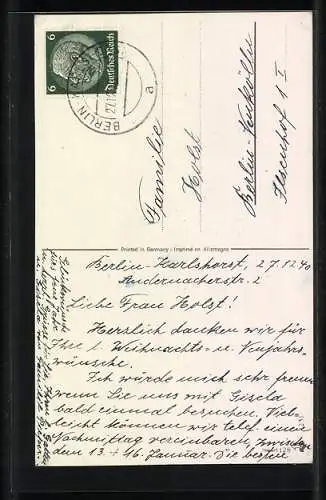 6 Deutsches Reich 6
BERLIN
27.12
a
Familie
Holst
Berlin-Neukölln
Ilsenhof 1 I
Printed in Germany - Imprimé en Allemagne
Berlin-Karlshorst, 27.12.40
Andernacherstr. 2
Liebe Frau Holst!
Herzlich danken wir für
Ihre l. Weihnachts- u. Neujahrs-
wünsche.
Ich würde mich sehr freuen
wenn Sie uns mit Gisela
bald einmal besuchen. Viel-
leicht können wir telef. einen
Nachmittag vereinbaren, zwischen
dem 13 + 16. Januar. Die besten
Glückwünsche
fürs Neue Jahr
u. herzl. Grüße
u. Gisela von